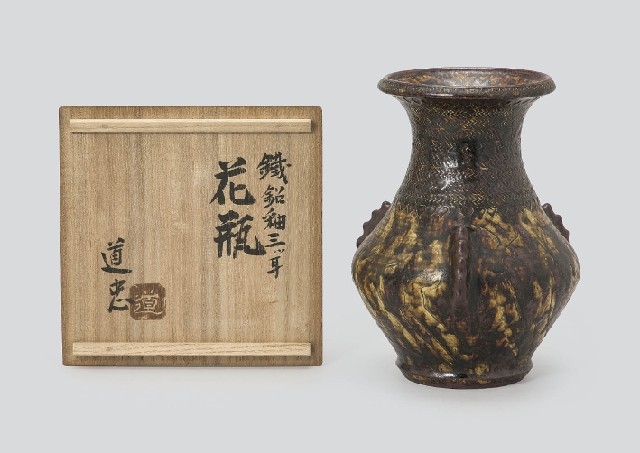 鐵鉛釉三ッ耳
花瓶
道忠
道